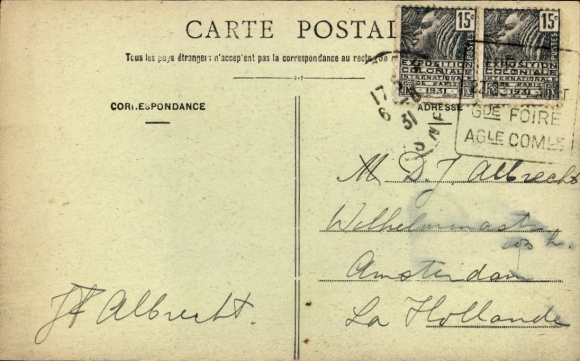 CARTE POSTAL
Tous les pays étrangers n'acceptent pas la correspondance au recto
CORRESPONDANCE
ADRESSE
15c 15c
EXPOSITION COLONIALE INTERNATIONALE DE PARIS 1931
EXPOSITION COLONIALE INTERNATIONALE DE PARIS 1931
POSTES
17
6
31
Gde FOIRE
AGLE COMLE
M D. J Albrecht
Wilhelminastr
Amsterdam
La Hollande
JF Albrecht.